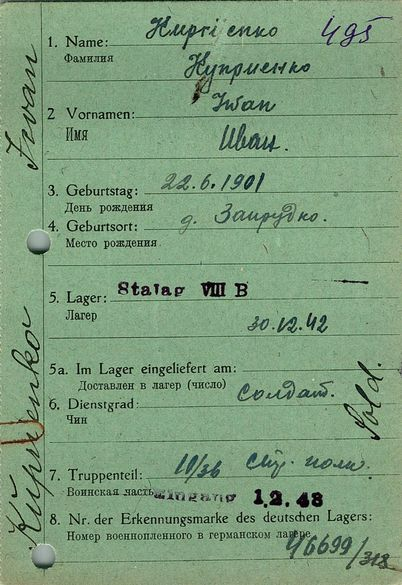 495
1. Name: Киргіенко
Фамилия
Куприенко
2 Vornamen: Иван
Имя
Иван.
3. Geburtstag: 22.6.1901
День рождения
4. Geburtsort: д. Запрудко.
Место рождения
5. Lager: Stalag VIII B
Лагер
30.12.42
5a. Im Lager eingeliefert am:
Доставлен в лагер (число)
солдат.
6. Dienstgrad:
Чин
Sold.
7. Truppenteil: полк.
Воинская часть Eingang 1.2.43
8. Nr. der Erkennungsmarke des deutschen Lagers:
Номер военнопленного в германском лагере
46699/318
Küprienko Iwan